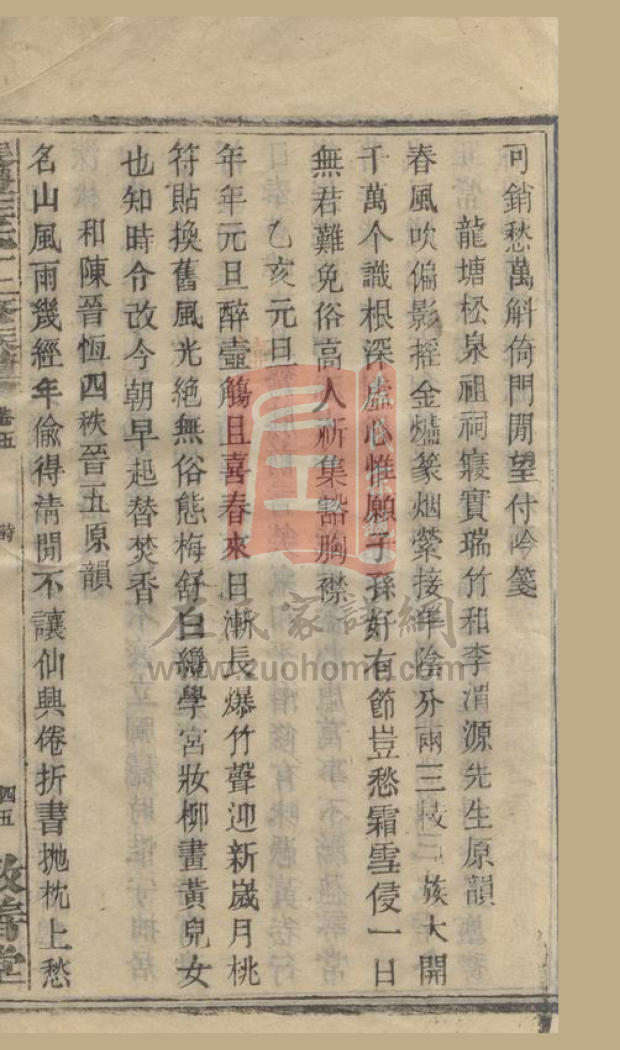 可銷愁萬斛倚門閒望付吟箋
龍塘松泉祖祠寢實瑞竹和李渭源先生原韻
春風吹偏影搖金爐篆烟縈接平陰分兩三枝族大開
千萬个識根深虛心惟願子孫好有節豈愁霜雪侵一日
無君難免俗高人祈集豁胸襟
乙亥元旦
年年元旦醉壺觴且喜春來日漸長爆竹聲迎新歲月桃
符貼換舊風光絶無俗態梅舒白纔學宮妝柳畫黃兒女
也知時令改今朝早起替焚香
和陳晉恆四秩晉五原韻
名山風雨幾經年偸得淸閒不讓仙興倦折書抛枕上愁
卷五
詩
四五
敦善堂
左氏家譜網
www.zuohome.com